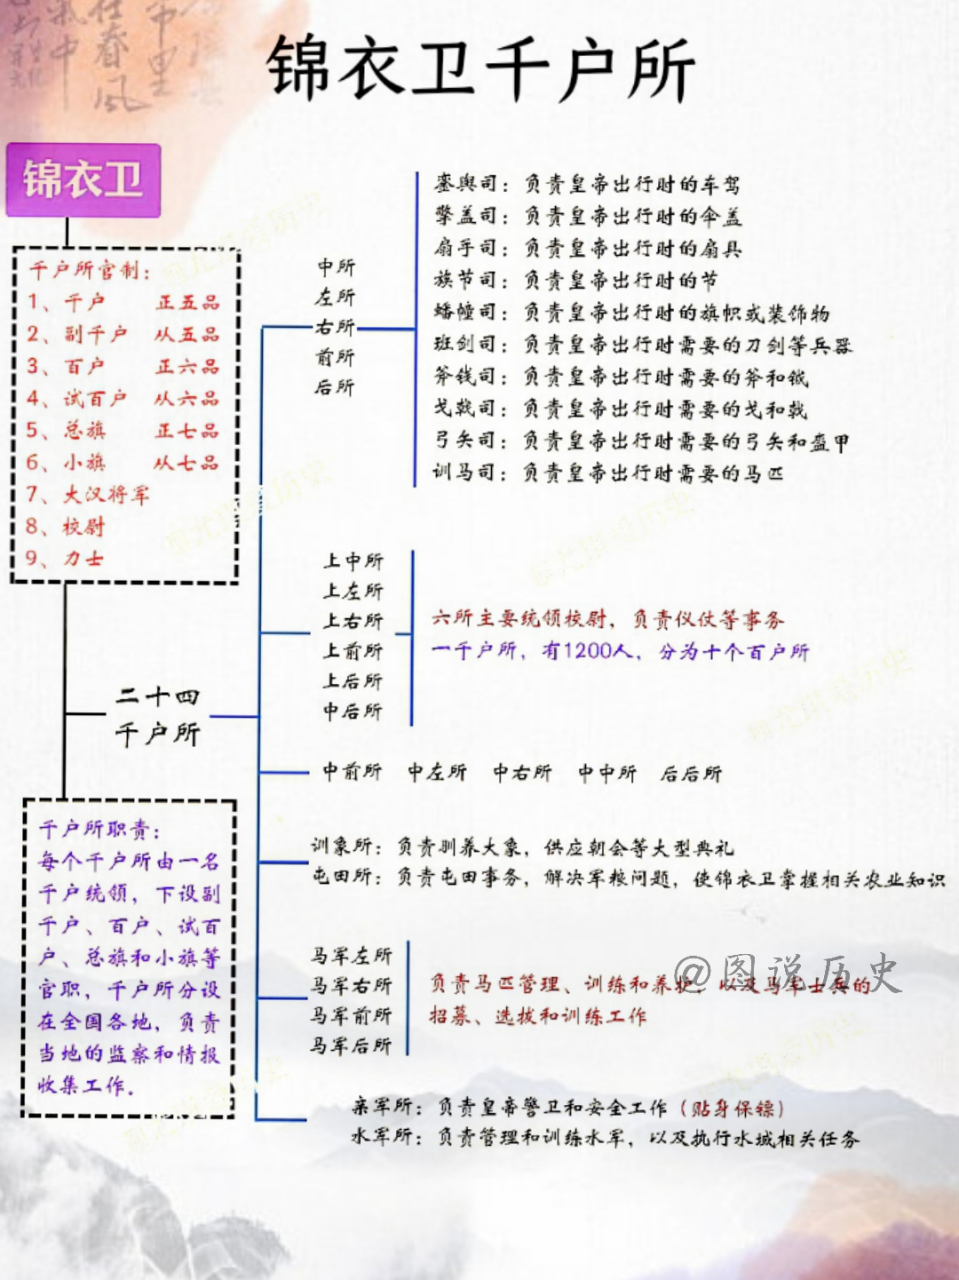 锦衣卫千户所
锦衣卫
千户所官制：
1、千户 正五品
2、副千户 从五品
3、百户 正六品
4、试百户 从六品
5、总旗 正七品
6、小旗 从七品
7、大汉将军
8、校尉
9、力士
二十四
千户所
千户所职责：
每个千户所由一名
千户统领，下设副
千户、百户、试百
户、总旗和小旗等
官职，千户所分设
在全国各地，负责
当地的监察和情报
收集工作.
中所
左所
右所
前所
后所
銮舆司：负责皇帝出行时的车驾
擎盖司：负责皇帝出行时的伞盖
扇手司：负责皇帝出行时的扇具
旌节司：负责皇帝出行时的节
蟠幢司：负责皇帝出行时的旗帜或装饰物
班剑司：负责皇帝出行时需要的刀剑等兵器
斧钱司：负责皇帝出行时需要的斧和钺
戈戟司：负责皇帝出行时需要的戈和戟
弓矢司：负责皇帝出行时需要的弓矢和盔甲
训马司：负责皇帝出行时需要的马匹
上中所
上左所
上右所
上前所
上后所
中后所
六所主要统领校尉，负责仪仗等事务
一千户所，有1200人，分为十个百户所
中前所 中左所 中右所 中中所 后后所
训象所：负责驯养大象，供应朝会等大型典礼
屯田所：负责屯田事务，解决军粮问题，使锦衣卫掌握相关农业知识
马军左所
马军右所
马军前所
马军后所
负责马匹管理、训练和养护，以及马军士兵的
招募、选拔和训练工作
@图说历史
亲军所：负责皇帝警卫和安全工作（贴身保镖）
水军所：负责管理和训练水军，以及执行水域相关任务